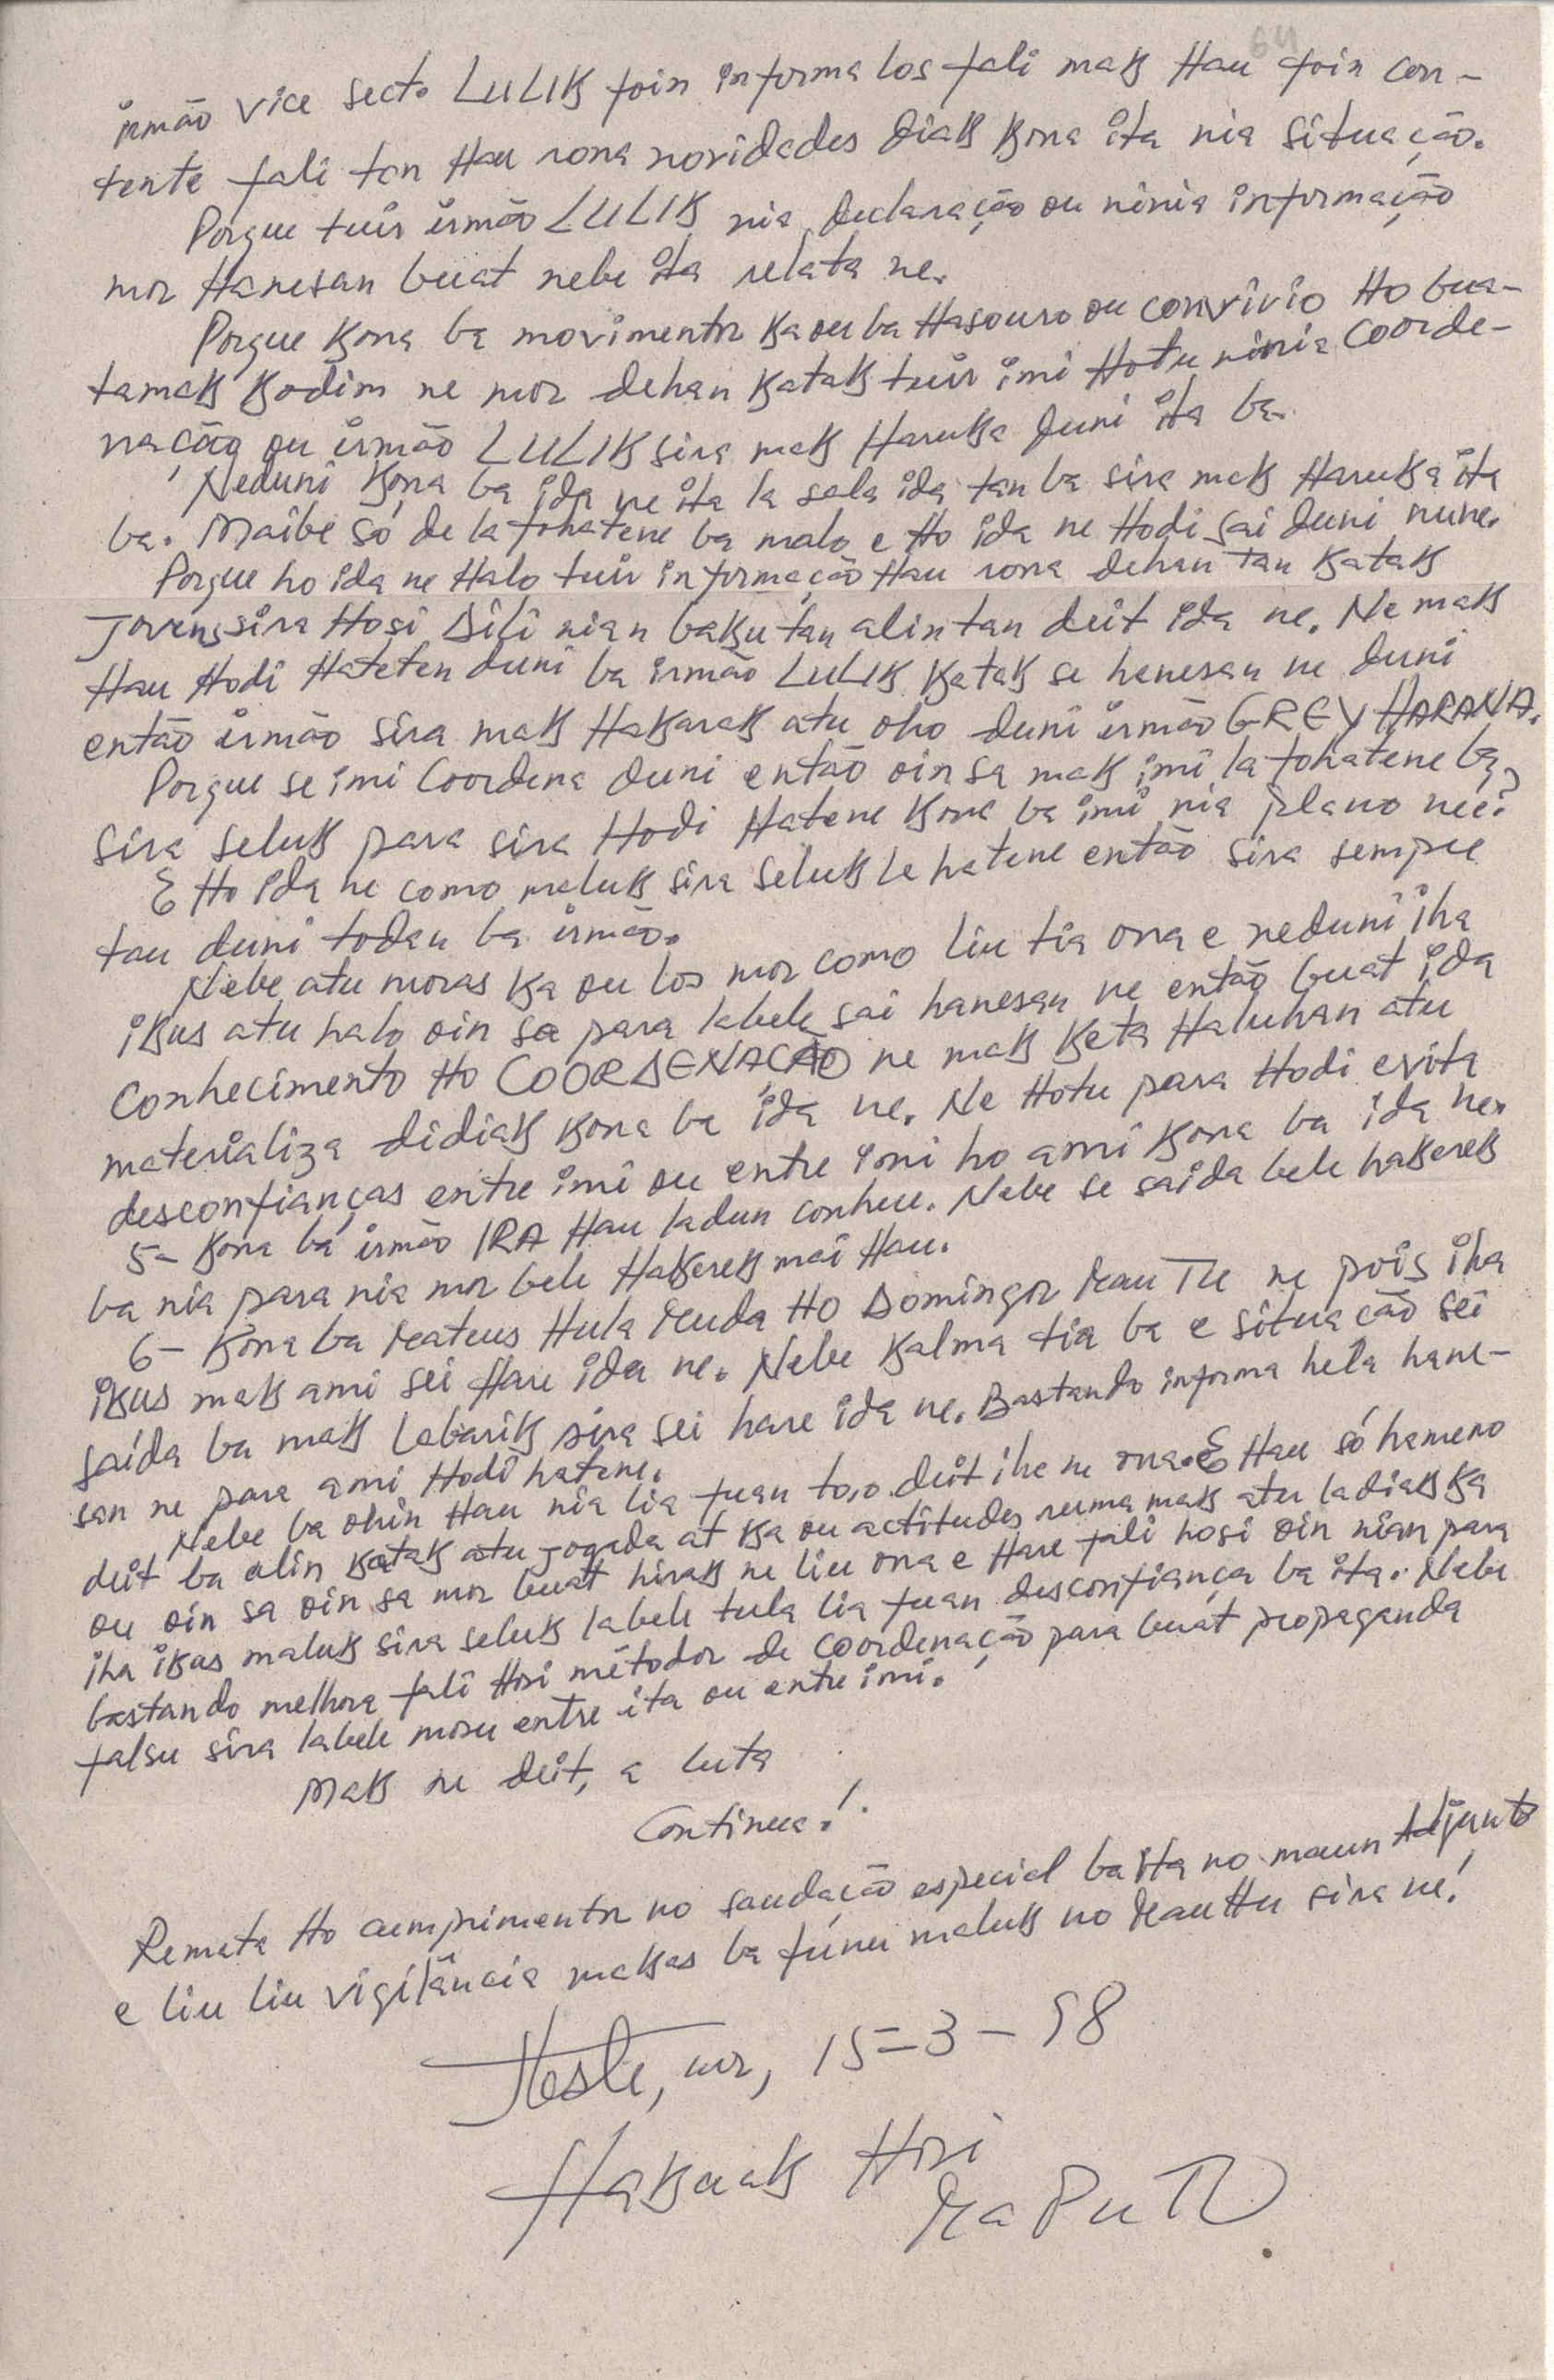 64
irmão vice sect. LULIK foin informa los fali mak Hau foin con-
tente fali tan Hau rona novidades diak kona ita nia situação.
Porque tuir irmão LULIK nia declaração ou ninia informação
mos Hanesan buat nebe ita relata ne.
Porque kona ba movimentos ka ou ba Hasouro ou convivio Ho bua-
tamak kodim ne mos dehan katak tuir imi Hotu ninia coorde-
nação ou irmão LULIK sira mak Haruka duni ita ba.
Neduni kona ba ida ne ita la sala ida tan ba sira mak Haruka ita
ba. Maibe só de la fohatene ba malo e Ho ida ne Hodi sai duni nune.
Porque ho ida ne Halo tuir informação Hau rona dehan tan katak
Jovens sira Hosi Dili nian baku tan alin tan deit ida ne. Ne mak
Hau Hodi Hateten duni ba irmão LULIK katak se hanesan ne duni
então irmão sira mak Hakarak atu oho duni irmão GREY HARANA.
Porque se imi Coordena duni então oin sa mak imi la fohatene ba
sira seluk para sira Hodi Hatene kona ba imi nia plano nee?
E Ho ida ne como maluk sira seluk la hatene então sira sempre
tau duni todan ba irmão.
Nebe atu moras ka ou los mos como liu tia ona e neduni iha
ikus atu halo oin sa para labele sai hanesan ne então buat ida
Conhecimento Ho COORDENAÇÃO ne mak keta Haluhan atu
materializa didiak kona ba ida ne. Ne Hotu para Hodi evita
desconfianças entre imi ou entre imi ho ami kona ba ida ne.
5- Kona ba irmão IRA Hau ladun conhece. Nebe se saida bele hakerek
ba nia para nia mos bele Hakerek mai Hau.
6- Kona ba Mateus Hula Muda Ho Domingos Mau Tu ne pois iha
ikus mak ami sei Hare ida ne. Nebe kalma tia ba e situação sei
saida ba mak labarik sira sei hare ida ne. Bastando informa hela hane-
san ne para ami Hodi hatene.
Nebe ba ohin Hau nia lia fuan too deit iha ne ona. E Hau só hameno
deit ba alin katak atu jogada at ka ou actitudes ruma mak atu ladiak ka
ou oin sa oin sa mos buat hirak ne liu ona e Hare fali hosi oin nian para
iha ikus maluk sira seluk labele tula lia fuan desconfiança ba ita. Nebe
bastando melhora fali Hosi métodos de coordenação para buat propaganda
falsu sira labele mosu entre ita ou entre imi.
Mak ne deit, a luta
Continua!
Remata Ho cumprimentos no saudação especial ba ita no maun Adjunto
e liu liu vigilância makas ba fúnu maluk no Mau Hu sira ne!
15-3-98
Hakuak Hosi
MaPuTO